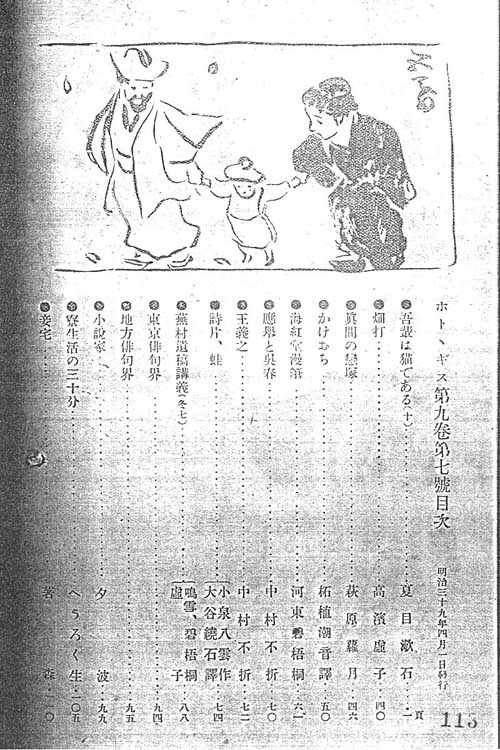 ホトヽギス第九卷第七號目次
明治三十九年四月一日發行
頁
吾輩は猫である(十)……夏目漱石…一
畑打……高濱虛子…四〇
眞間の戀塚……萩原蘿月…四六
かけおち……柘植潮音譯…五〇
海紅堂漫筆……河東碧梧桐…六一
應擧と吳春……中村不折…七〇
王羲之……中村不折…七二
詩片、蛙……小泉八雲作 大谷繞石譯…七四
蕪村遺稿講義(冬七)……鳴雪、碧梧桐 虛子…八八
東京俳句界……九四
地方俳句界……九五
小說家……夕波…九九
寮生活の三十分……へうろく生…一〇五
妾宅……森…一一〇
113